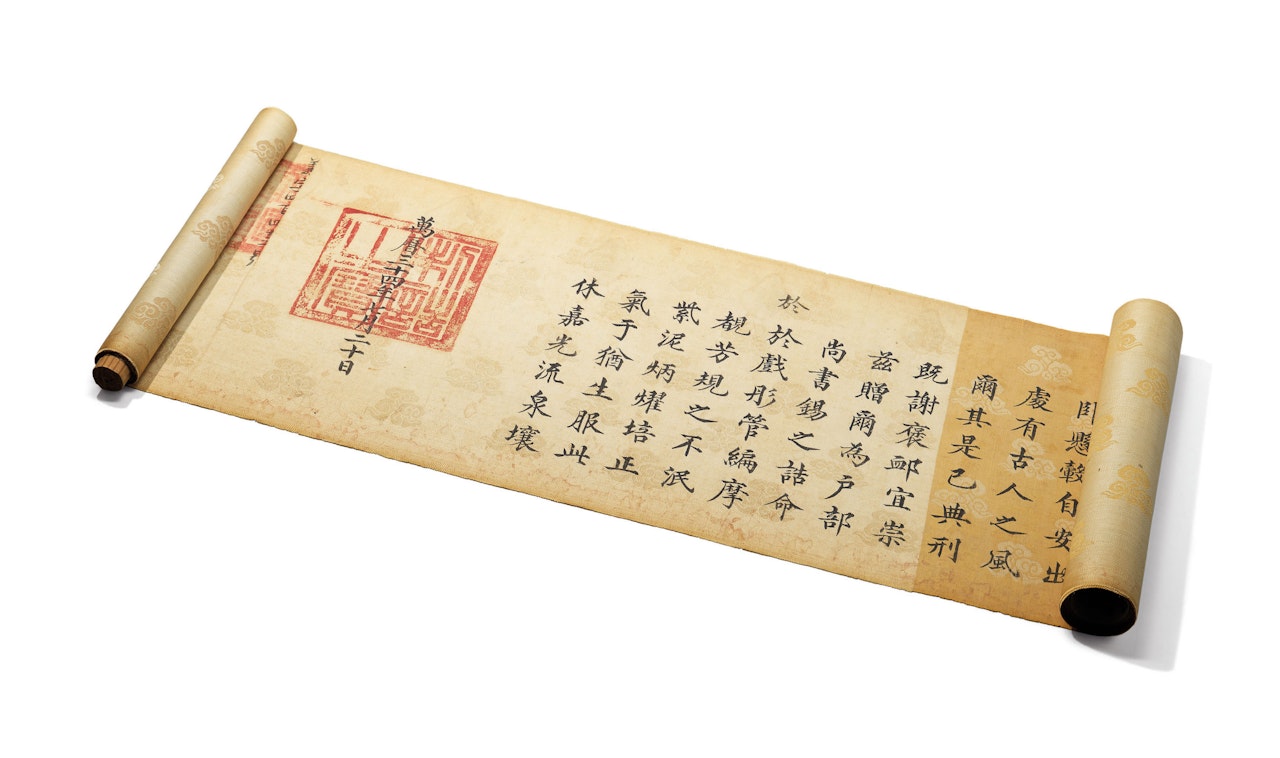 懸轂自安出
處有古人之風
爾其是已典刑
既謝褒卹宜崇
茲贈爾為戶部
尚書錫之誥命
於
於戲彤管編摩
靚芳規之不泯
紫泥炳燿培正
氣于猶生服此
休嘉光流泉壤
萬曆三十四年月二十日
制誥之寶